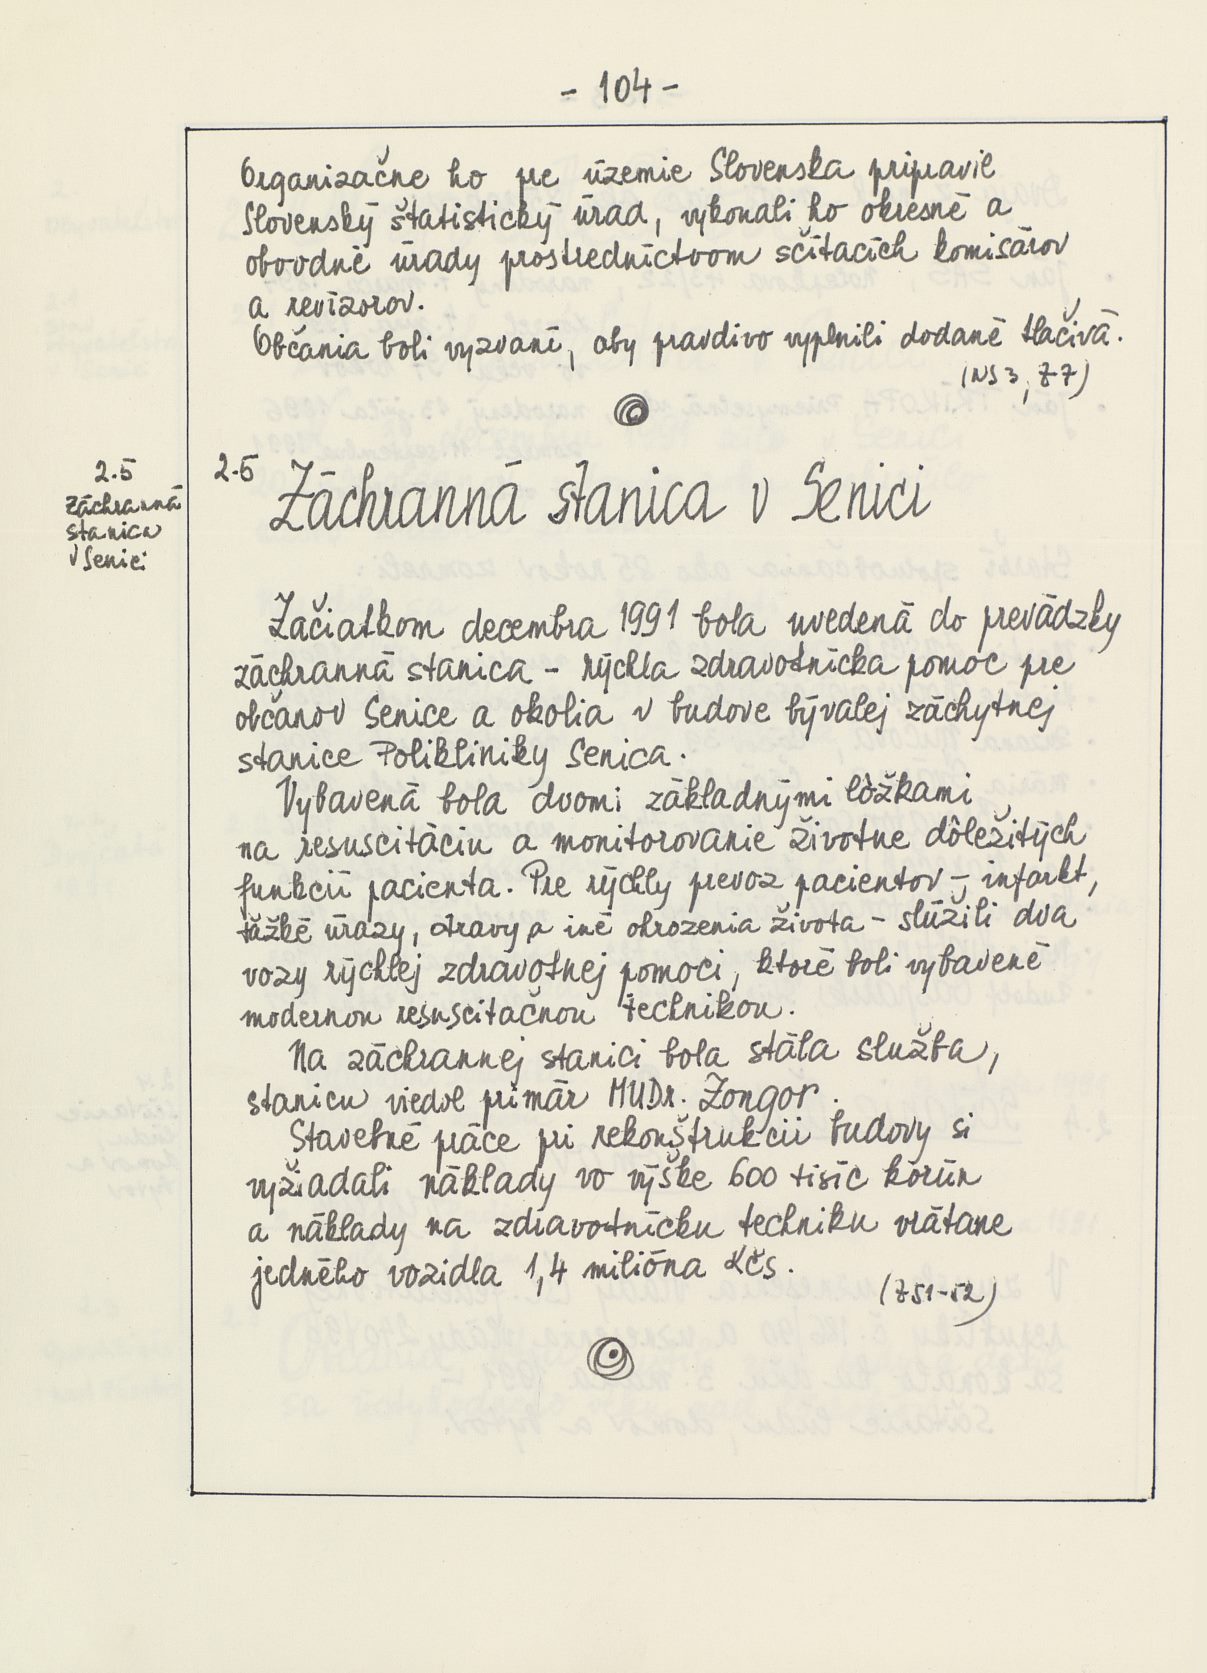 - 104 -
Organizačne ho pre územie Slovenska pripravil
Slovenský štatistický úrad, vykonali ho okresné a
obvodné úrady prostredníctvom sčítacích komisárov
a revízorov.
Občania boli vyzvaní, aby pravdivo vyplnili dodané tlačivá.
(NS 3, Z 7)
2.5
Záchranná
stanica
v Senici
2.5 Záchranná stanica v Senici
Začiatkom decembra 1991 bola uvedená do prevádzky
záchranná stanica - rýchla zdravotnícka pomoc pre
občanov Senice a okolia v budove bývalej záchytnej
stanice Polikliniky Senica.
Vybavená bola dvomi základnými lôžkami
na resuscitáciu a monitorovanie životne dôležitých
funkcií pacienta. Pre rýchly prevoz pacientov - infarkt,
ťažké úrazy, otravy a iné ohrozenia života - slúžili dva
vozy rýchlej zdravotnej pomoci, ktoré boli vybavené
modernou resuscitačnou technikou.
Na záchrannej stanici bola stála služba,
stanicu viedol primár MUDr. Zongor.
Stavebné práce pri rekonštrukcii budovy si
vyžiadali náklady vo výške 600 tisíc korún
a náklady na zdravotnícku techniku vrátane
jedného vozidla 1,4 milióna Kčs.
(Z 51-52)